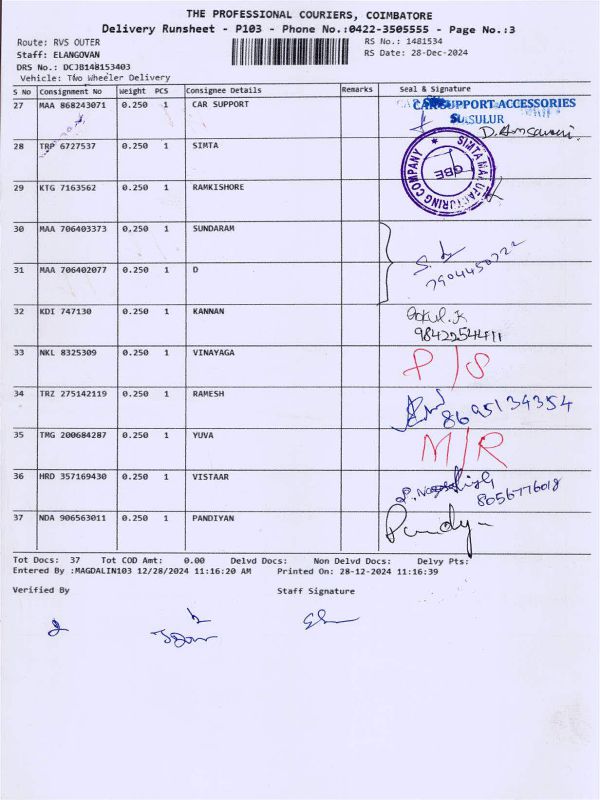 THE PROFESSIONAL COURIERS, COIMBATORE
Delivery Runsheet - P103 - Phone No.:0422-3505555 - Page No.:3
Route: RVS OUTER
RS No.: 1481534
Staff: ELANGOVAN
RS Date: 28-Dec-2024
DRS No.: DCJB148153403
Vehicle: Two Wheeler Delivery
S No Consignment No Weight PCS Consignee Details Remarks Seal & Signature
27 MAA 868243071 0.250 1 CAR SUPPORT
CAR SUPPORT ACCESSORIES
SULUR
28 TRP 6727537 0.250 1 SIMTA
SIMTA MANUFACTURING COMPANY
CBE
29 KTG 7163562 0.250 1 RAMKISHORE
30 MAA 706403373 0.250 1 SUNDARAM
31 MAA 706402077 0.250 1 D
7904450722
32 KDI 747130 0.250 1 KANNAN
Gokul.K
9842254411
33 NKL 8325309 0.250 1 VINAYAGA P/S
34 TRZ 275142119 0.250 1 RAMESH 8695134354
35 TMG 200684287 0.250 1 YUVA M/R
36 HRD 357169430 0.250 1 VISTAAR
8056776018
37 NDA 906563011 0.250 1 PANDIYAN Pandy
Tot Docs: 37 Tot COD Amt: 0.00 Delvd Docs: Non Delvd Docs: Delvy Pts:
Entered By :MAGDALIN103 12/28/2024 11:16:20 AM Printed On: 28-12-2024 11:16:39
Verified By Staff Signature